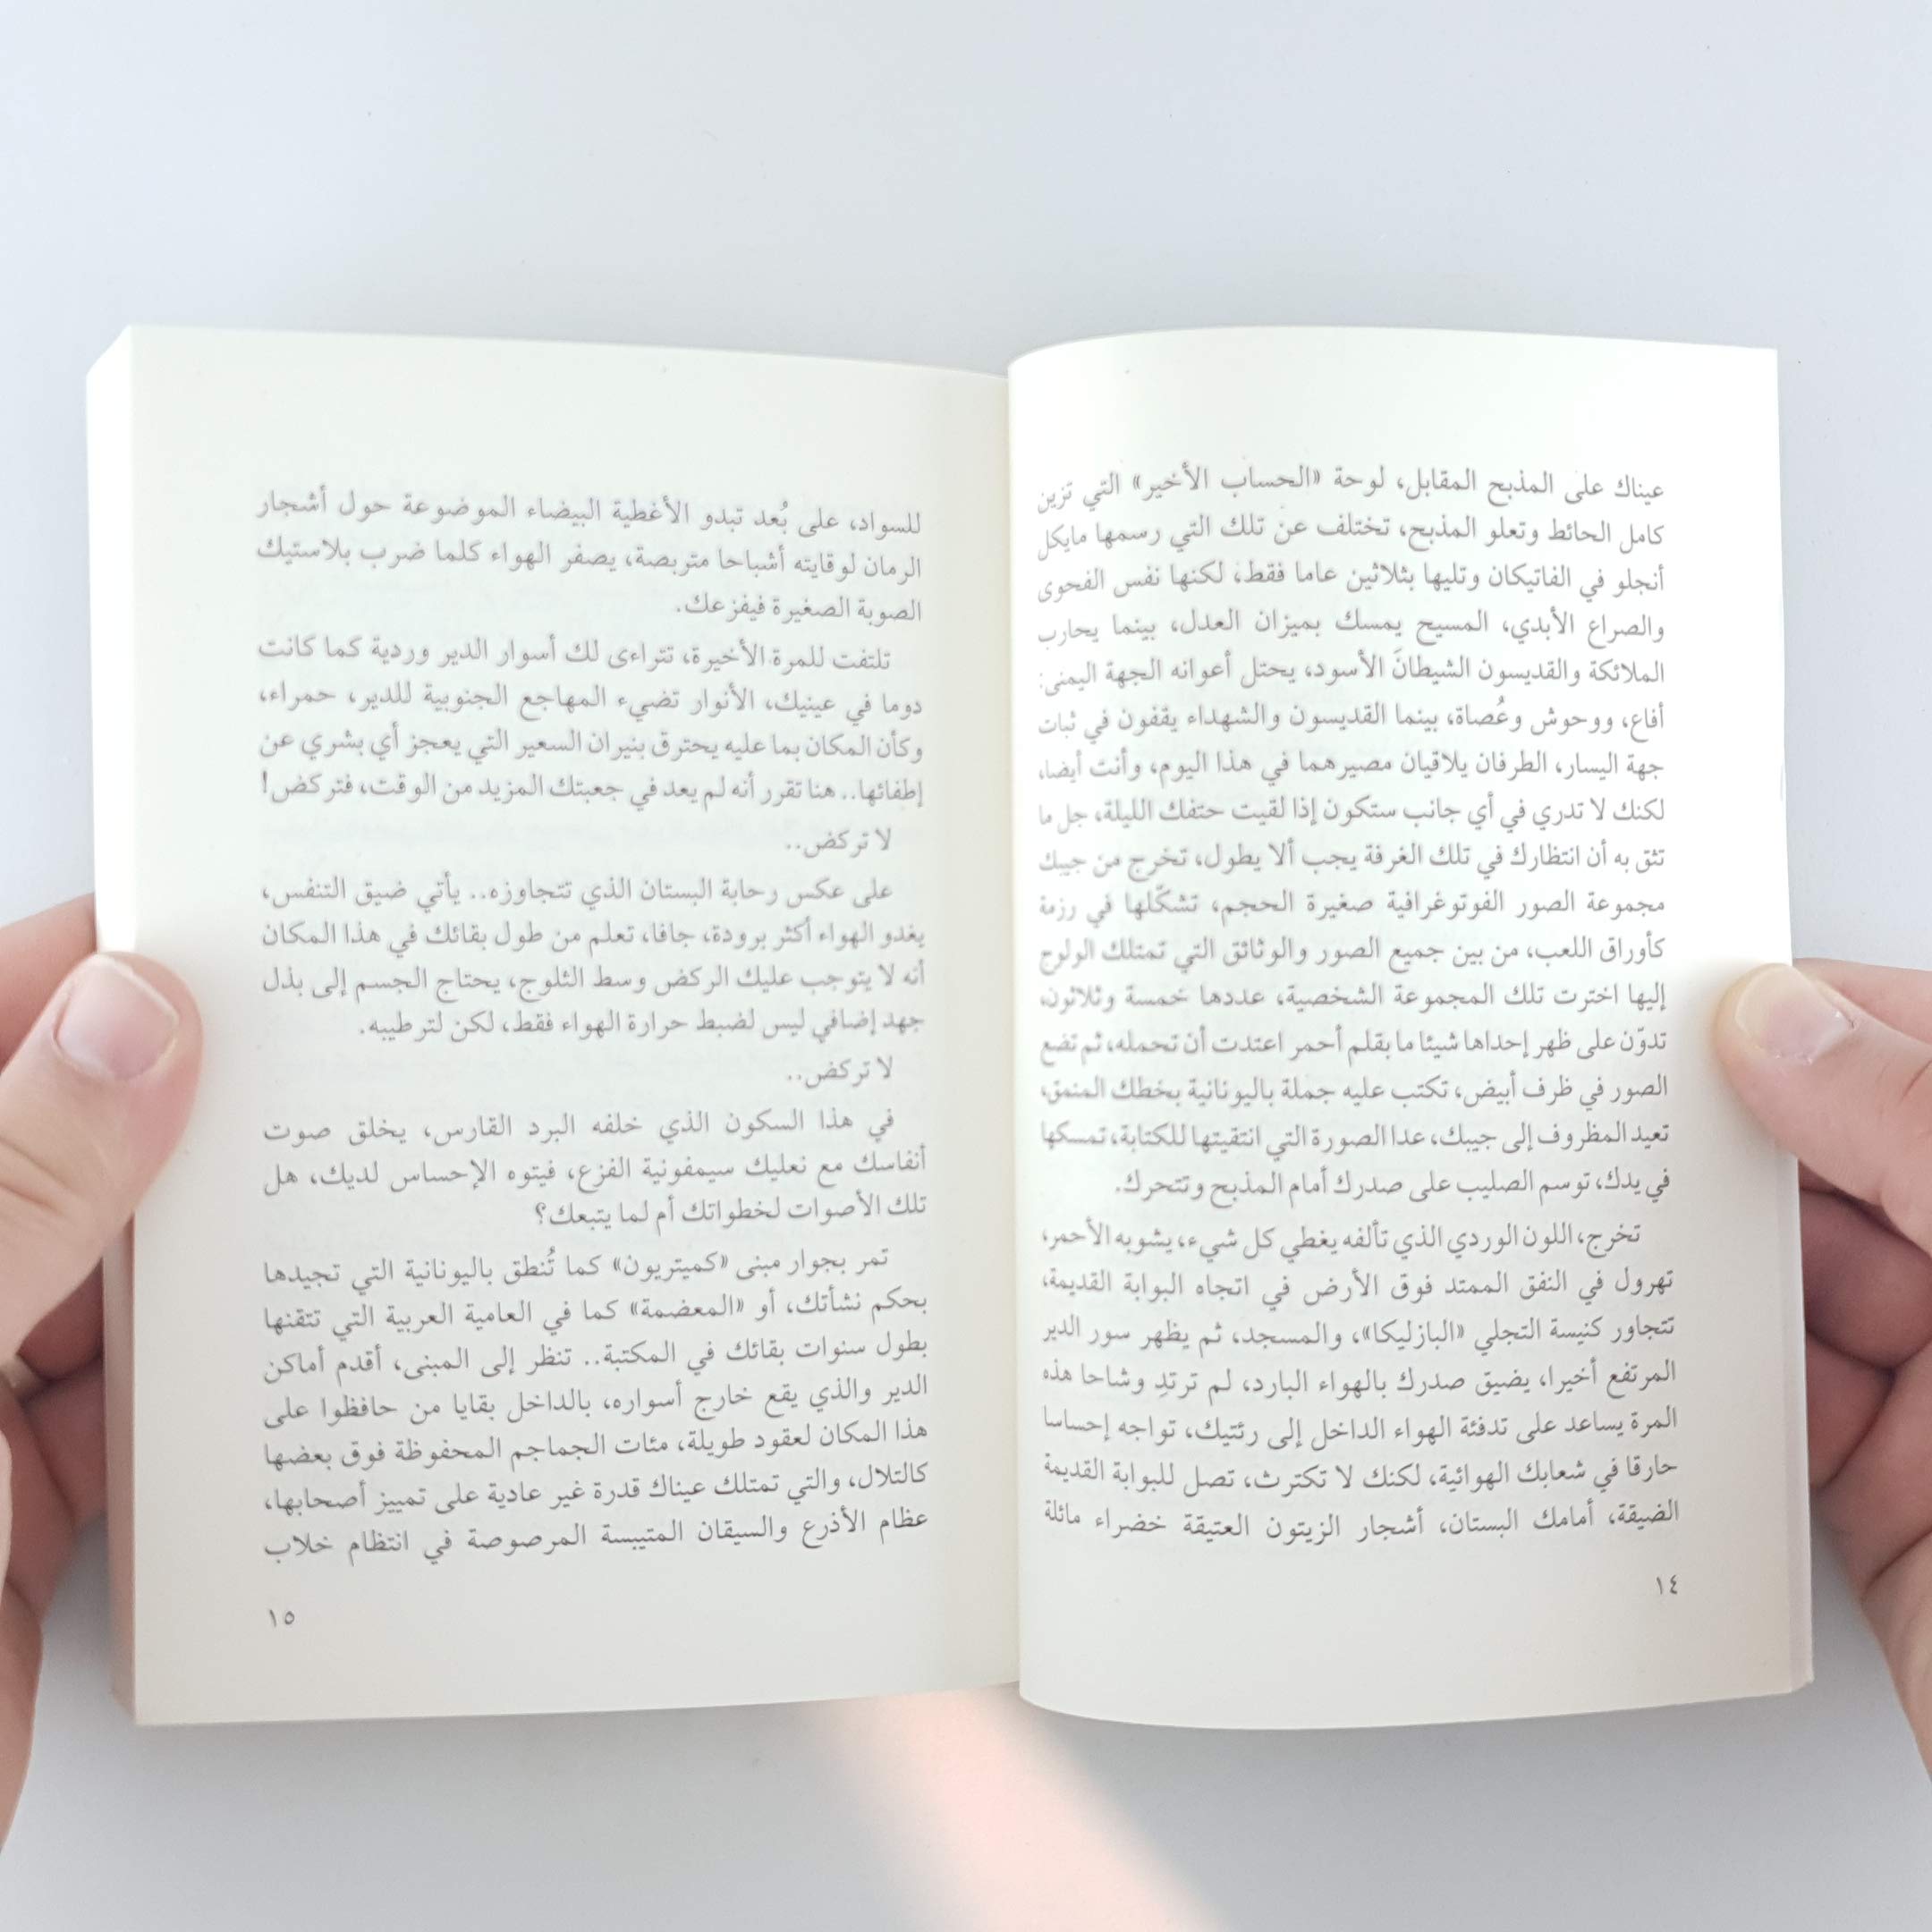 عيناك على المذبح المقابل، لوحة «الحساب الأخير» التي تزين
كامل الحائط وتعلو المذبح، تختلف عن تلك التي رسمها مايكل
أنجلو في الفاتيكان وتليها بثلاثين عاما فقط، لكنها نفس الفحوى
والصراع الأبدي، المسيح يمسك بميزان العدل، بينما يحارب
الملائكة والقديسون الشيطانَ الأسود، يحتل أعوانه الجهة اليمنى:
أفاع، ووحوش وعُصاة، بينما القديسون والشهداء يقفون في ثبات
جهة اليسار، الطرفان يلاقيان مصيرهما في هذا اليوم، وأنت أيضا،
لكنك لا تدري في أي جانب ستكون إذا لقيت حتفك الليلة، جل ما
تثق به أن انتظارك في تلك الغرفة يجب ألا يطول، تخرج من جيبك
مجموعة الصور الفوتوغرافية صغيرة الحجم، تشكّلها في رزمة
كأوراق اللعب، من بين جميع الصور والوثائق التي تمتلك الولوج
إليها اخترت تلك المجموعة الشخصية، عددها خمسة وثلاثون،
تدوّن على ظهر إحداها شيئا ما بقلم أحمر اعتدت أن تحمله، ثم تضع
الصور في ظرف أبيض، تكتب عليه جملة باليونانية بخطك المنمق،
تعيد المظروف إلى جيبك، عدا الصورة التي انتقيتها للكتابة، تمسكها
في يدك، توسم الصليب على صدرك أمام المذبح وتتحرك.
تخرج، اللون الوردي الذي تألفه يغطي كل شيء، يشوبه الأحمر،
تهرول في النفق الممتد فوق الأرض في اتجاه البوابة القديمة،
تتجاور كنيسة التجلي «البازليكا»، والمسجد، ثم يظهر سور الدير
المرتفع أخيرا، يضيق صدرك بالهواء البارد، لم ترتدِ وشاحا هذه
المرة يساعد على تدفئة الهواء الداخل إلى رئتيك، تواجه إحساسا
حارقا في شعابك الهوائية، لكنك لا تكترث، تصل للبوابة القديمة
الضيقة، أمامك البستان، أشجار الزيتون العتيقة خضراء مائلة
١٤
للسواد، على بُعد تبدو الأغطية البيضاء الموضوعة حول أشجار
الرمان لوقايته أشباحا متربصة، يصفر الهواء كلما ضرب بلاستيك
الصوبة الصغيرة فيفزعك.
تلتفت للمرة الأخيرة، تتراءى لك أسوار الدير وردية كما كانت
دوما في عينيك، الأنوار تضيء المهاجع الجنوبية للدير، حمراء،
وكأن المكان بما عليه يحترق بنيران السعير التي يعجز أي بشري عن
إطفائها.. هنا تقرر أنه لم يعد في جعبتك المزيد من الوقت، فتركض!
لا تركض..
على عكس رحابة البستان الذي تتجاوزه.. يأتي ضيق التنفس،
يغدو الهواء أكثر برودة، جافا، تعلم من طول بقائك في هذا المكان
أنه لا يتوجب عليك الركض وسط الثلوج، يحتاج الجسم إلى بذل
جهد إضافي ليس لضبط حرارة الهواء فقط، لكن لترطيبه.
لا تركض..
في هذا السكون الذي خلفه البرد القارس، يخلق صوت
أنفاسك مع نعليك سيمفونية الفزع، فيتوه الإحساس لديك، هل
تلك الأصوات لخطواتك أم لما يتبعك؟
تمر بجوار مبنى «كميتريون» كما تُنطق باليونانية التي تجيدها
بحكم نشأتك، أو «المعضمة» كما في العامية العربية التي تتقنها
بطول سنوات بقائك في المكتبة.. تنظر إلى المبنى، أقدم أماكن
الدير والذي يقع خارج أسواره، بالداخل بقايا من حافظوا على
هذا المكان لعقود طويلة، مئات الجماجم المحفوظة فوق بعضها
كالتلال، والتي تمتلك عيناك قدرة غير عادية على تمييز أصحابها،
عظام الأذرع والسيقان المتيبسة المرصوصة في انتظام خلاب
١٥